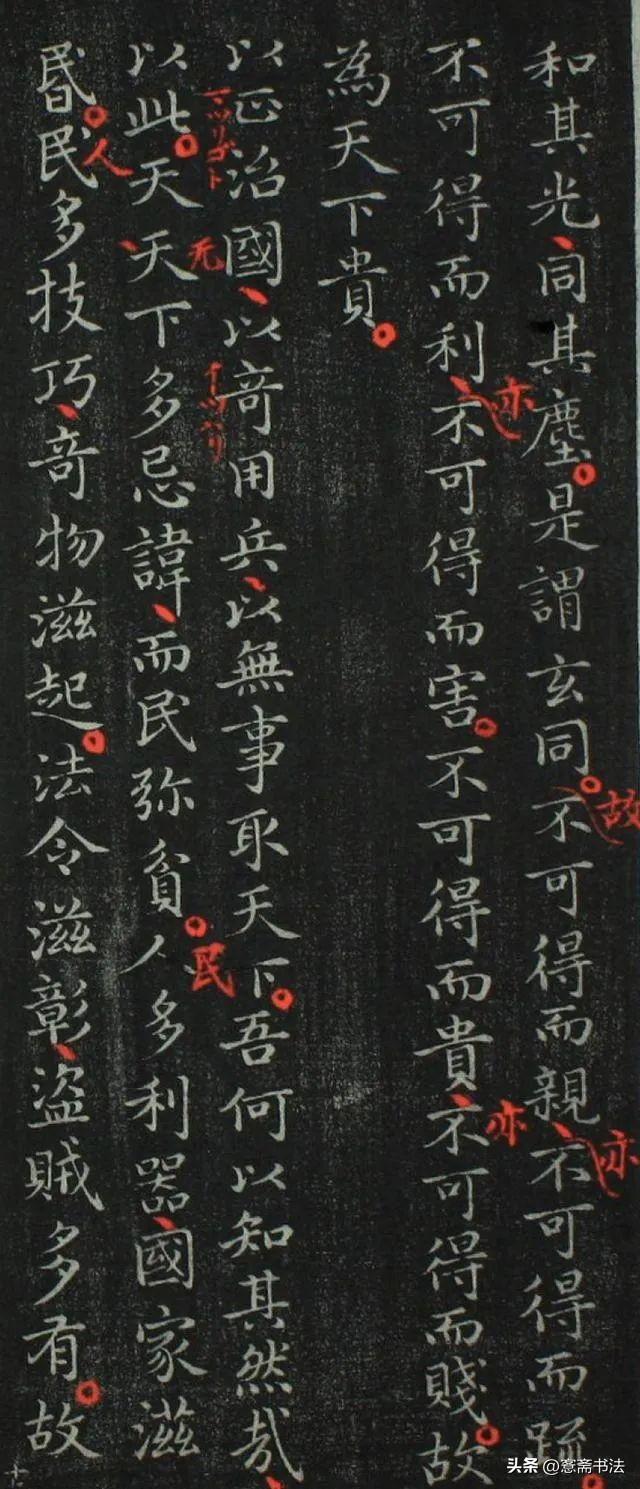 和其光同其塵是謂玄同不可得而親不可得而踈
故
亦
不可得而利不可得而害不可得而貴不可得而賤故
亦
亦
為天下貴
以正治國以竒用兵以無事取天下吾何以知其然哉
マツリゴト
以此天天下多忌諱而民弥貧人多利器國家滋
无
民
昬民多技巧竒物滋起法令滋彰盗賊多有故
人
十
头条 @愙斋书法